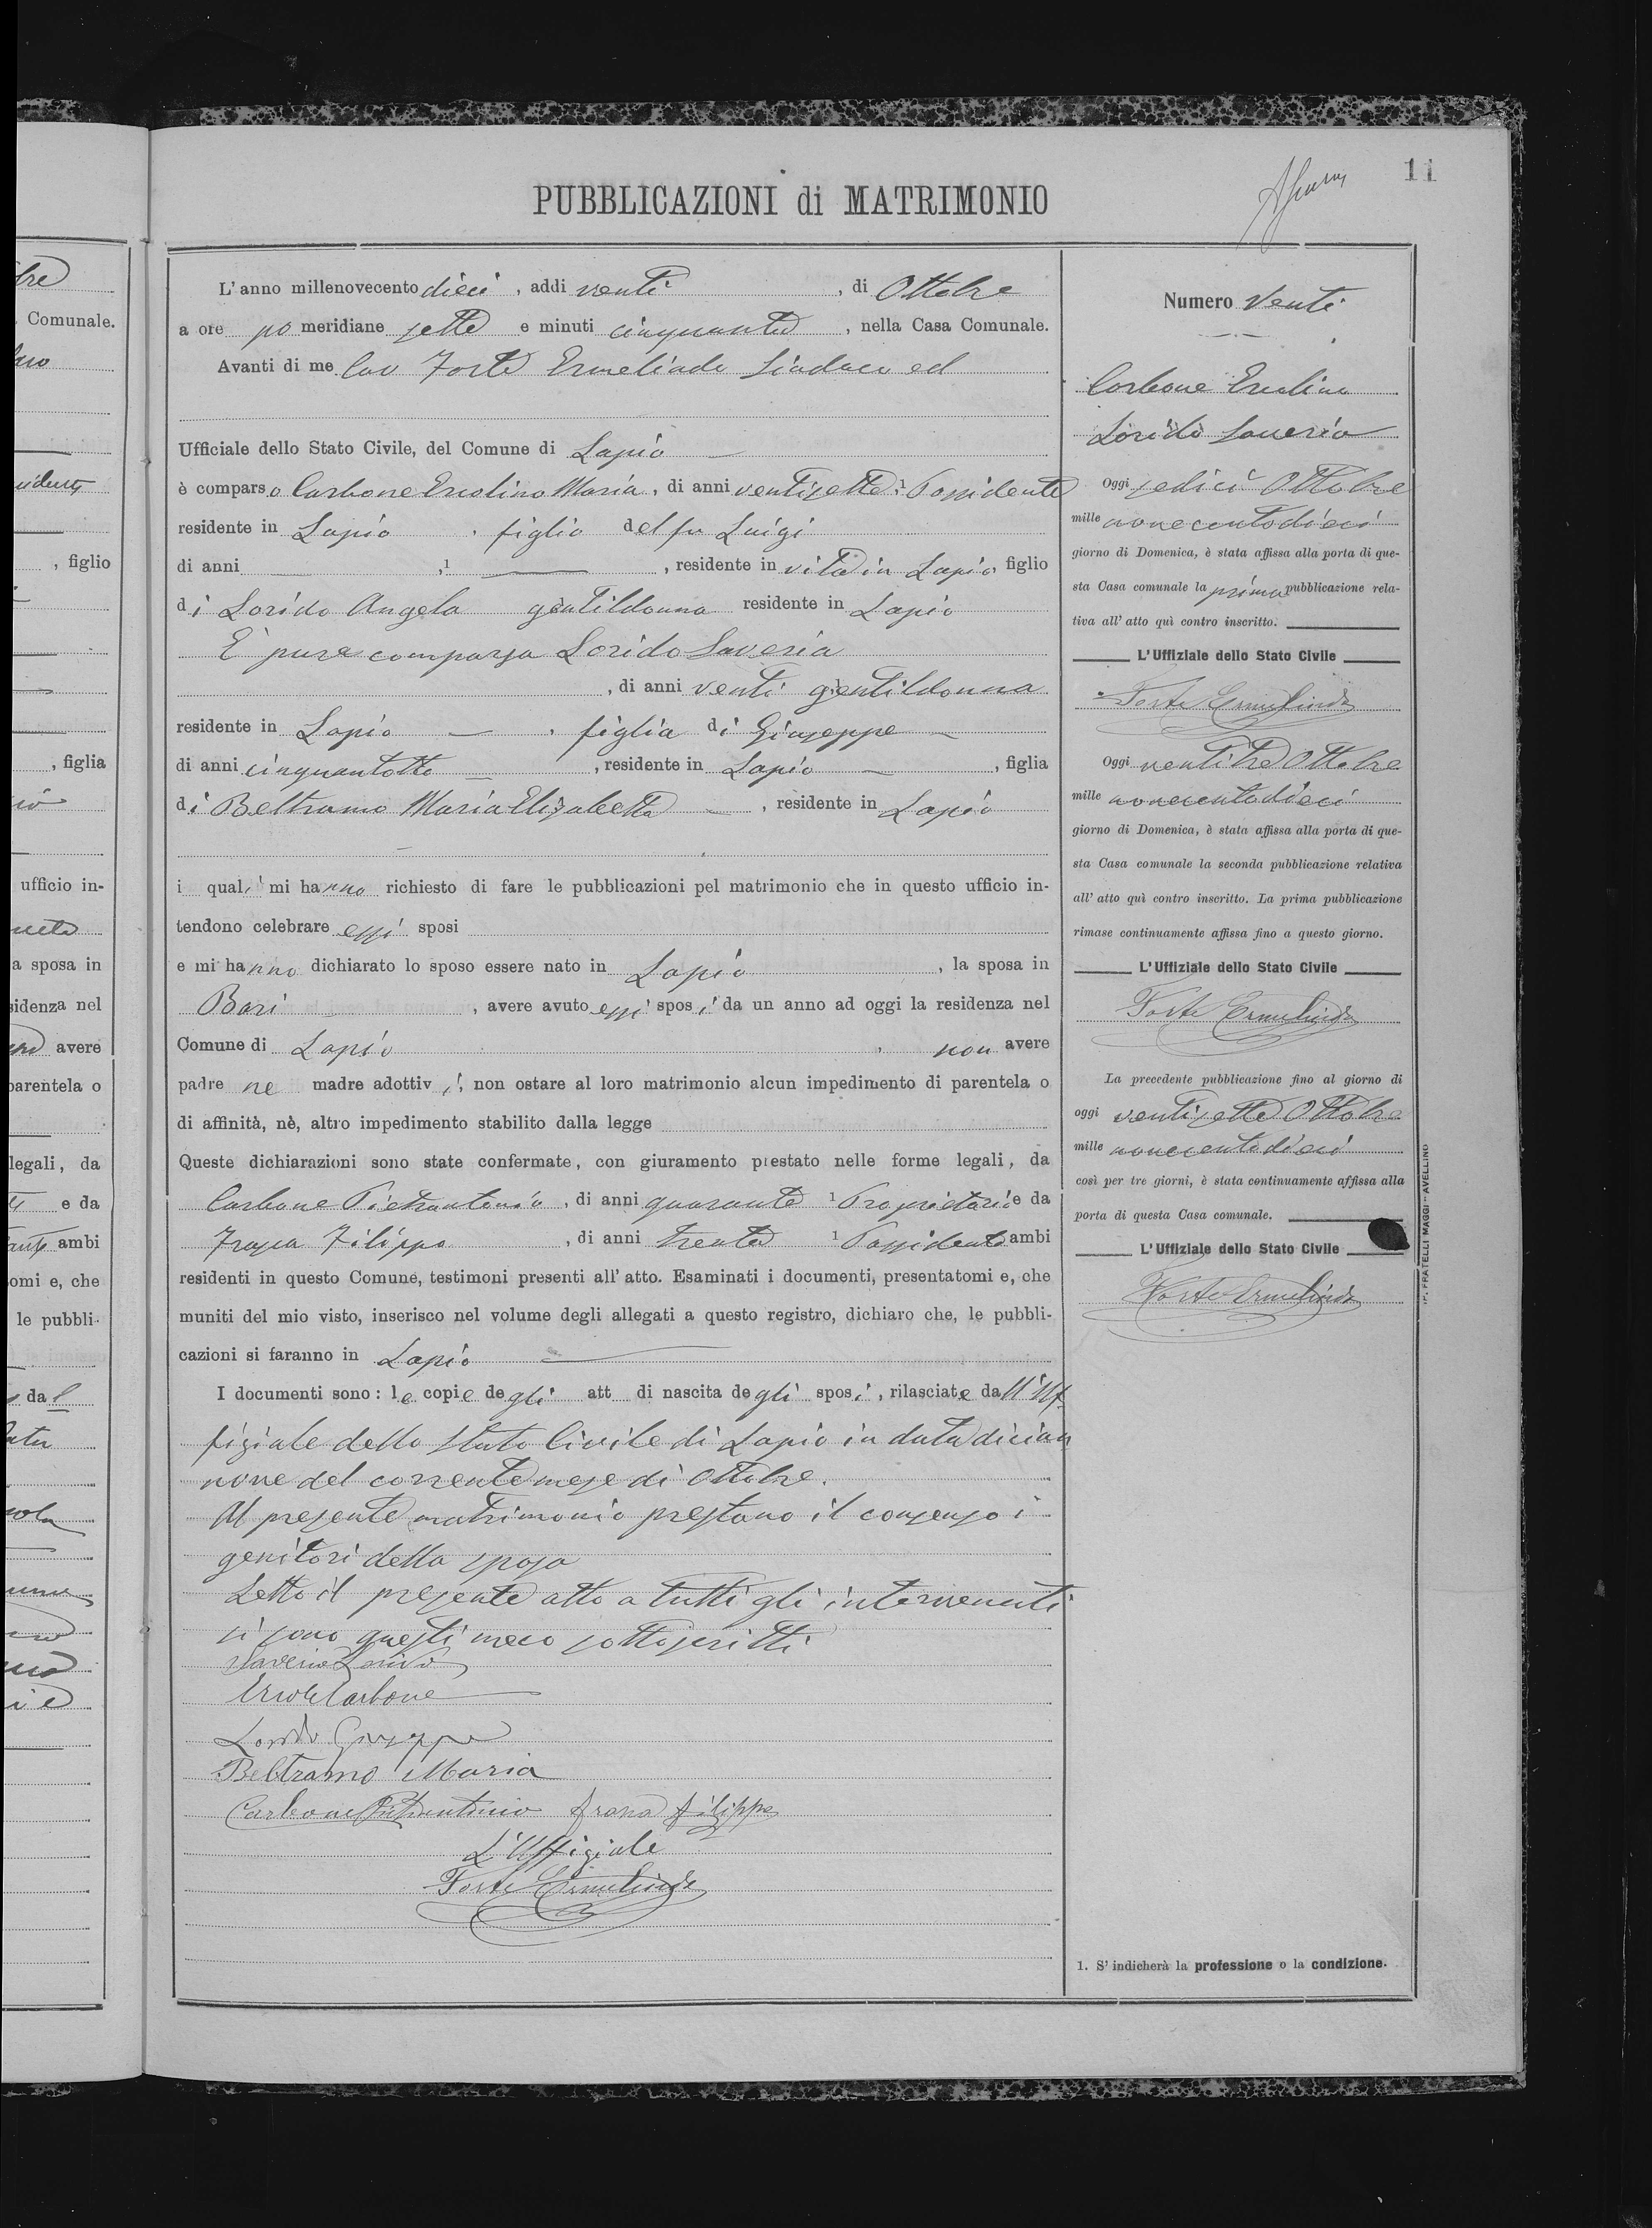 11
PUBBLICAZIONI di MATRIMONIO
L'anno millenovecento dieci, addi venti, di Ottobre
a ore po meridiane sette e minuti cinquanta, nella Casa Comunale.
Avanti di me Cav Forte Ermelindo Sindaco ed
Ufficiale dello Stato Civile, del Comune di Lapio
è comparso Carbone Ercolino Maria, di anni ventisette Possidente
residente in Lapio figlio del fu Luigi
di anni ,1 , residente in vita in Lapio, figlio
di Lorido Angela gentildonna residente in Lapio
E' pure comparsa Lorido Saveria
, di anni venti gentildonna
residente in Lapio figlia di Giuseppe
di anni cinquantotto, residente in Lapio, figlia
di Beltramo Maria Elisabetta, residente in Lapio
i quali mi hanno richiesto di fare le pubblicazioni pel matrimonio che in questo ufficio in-
tendono celebrare essi sposi
e mi hanno dichiarato lo sposo essere nato in Lapio, la sposa in
Bari, avere avuto essi sposi da un anno ad oggi la residenza nel
Comune di Lapio, non avere
padre ne madre adottivi, non ostare al loro matrimonio alcun impedimento di parentela o
di affinità, nè, altro impedimento stabilito dalla legge
Queste dichiarazioni sono state confermate, con giuramento prestato nelle forme legali, da
Carbone Pietrantonio, di anni quaranta 1 Proprietario e da
Frasca Filippo, di anni trenta 1 Possidente ambi
residenti in questo Comune, testimoni presenti all'atto. Esaminati i documenti, presentatomi e, che
muniti del mio visto, inserisco nel volume degli allegati a questo registro, dichiaro che, le pubbli-
cazioni si faranno in Lapio
I documenti sono: le copie degli att di nascita degli sposi, rilasciate dall'Uf
fiziale dello Stato Civile di Lapio in data dician
nove del corrente mese di Ottobre.
Al presente matrimonio prestano il consenso i
genitori della sposa
Letto il presente atto a tutti gli intervenuti
si sono questi meco sottoscritti
Saveria Lorido
Ercole Carbone
Lorido Giuseppe
Beltramo Maria
Carbone Pietrantonio Filippo
L'Uffiziale
Forte Ermelindo
Numero Venti
Carbone Ercolino
Lorido Saveria
Oggi sedici Ottobre
mille novecentodieci
giorno di Domenica, è stata affissa alla porta di que-
sta Casa comunale la prima pubblicazione rela-
tiva all'atto quì contro inscritto.
L'Uffiziale dello Stato Civile
Forte Ermelindo
Oggi ventitre Ottobre
mille novecentodieci
giorno di Domenica, è stata affissa alla porta di que-
sta Casa comunale la seconda pubblicazione relativa
all'atto quì contro inscritto. La prima pubblicazione
rimase continuamente affissa fino a questo giorno.
L'Uffiziale dello Stato Civile
Forte Ermelindo
La precedente pubblicazione fino al giorno di
oggi ventisette Ottobre
mille novecentodieci
così per tre giorni, è stata continuamente affissa alla
porta di questa Casa comunale.
L'Uffiziale dello Stato Civile
Forte Ermelindo
1. S'indicherà la professione o la condizione.
FRATELLI MAGGI - AVELLINO
Comunale.
, figlio
, figlia
ufficio in-
a sposa in
sidenza nel
avere
parentela o
legali, da
e da
ambi
omi e, che
le pubbli-
dal